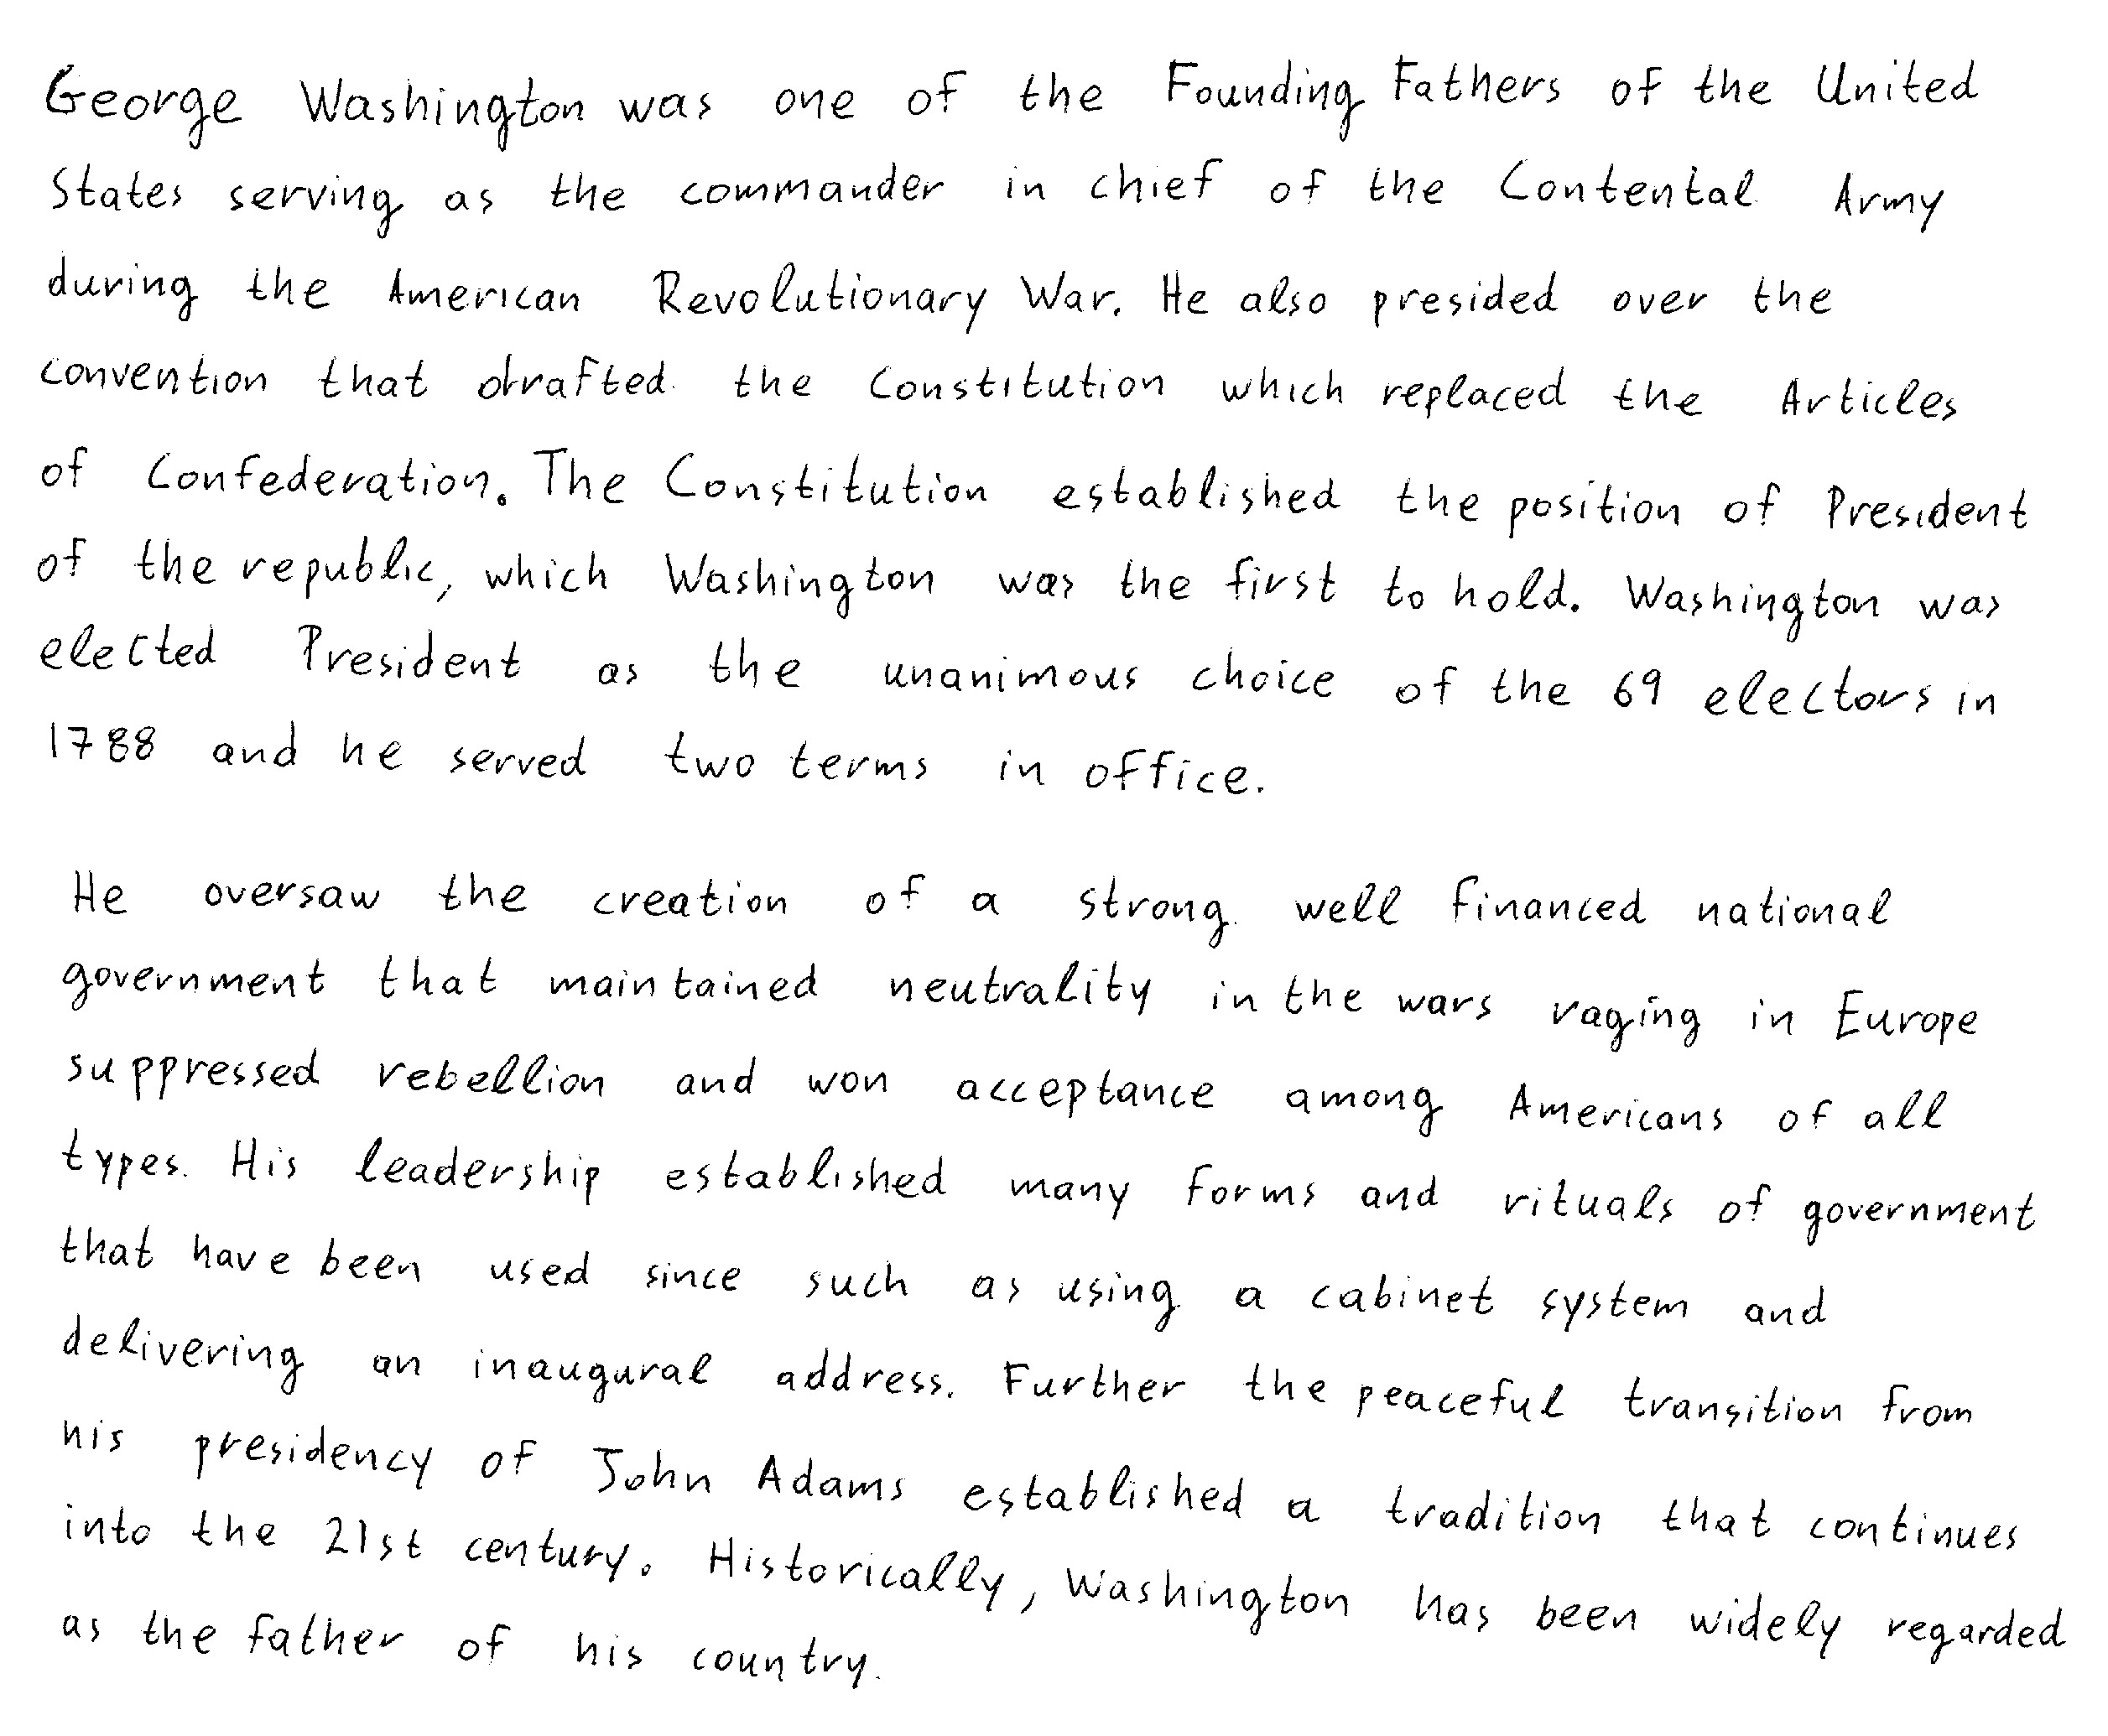 George Washington was one of the Founding Fathers of the United
States serving as the commander in chief of the Contental Army
during the American Revolutionary War. He also presided over the
convention that drafted the Constitution which replaced the Articles
of Confederation. The Constitution established the position of President
of the republic, which Washington was the first to hold. Washington was
elected President as the unanimous choice of the 69 electors in
1788 and he served two terms in office.
He oversaw the creation of a strong well financed national
government that maintained neutrality in the wars raging in Europe
suppressed rebellion and won acceptance among Americans of all
types. His leadership established many forms and rituals of government
that have been used since such as using a cabinet system and
delivering an inaugural address. Further the peaceful transition from
his presidency of John Adams established a tradition that continues
into the 21st century. Historically, Washington has been widely regarded
as the father of his country.